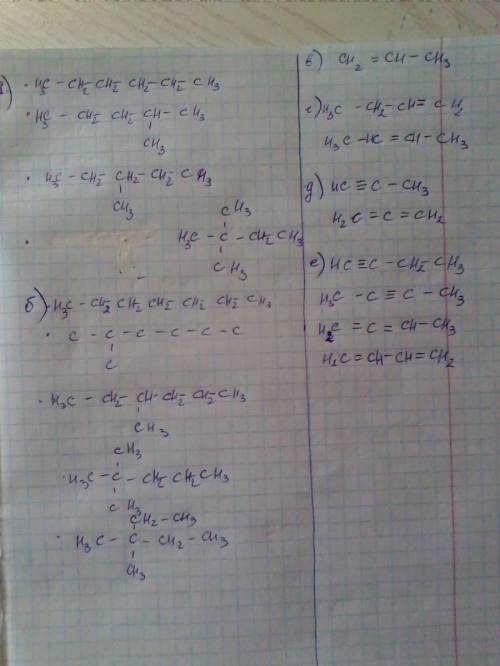 а)
· H3C - CH2 - CH2 - CH2 - CH2 - CH3
· H3C - CH2 - CH2 - CH - CH3
CH3
· H3C - CH2 - CH2 - CH2 - CH3
CH3
CH3
· H3C - C - CH2 CH3
CH3
б) · H3C - CH2 CH2 CH2 CH2 CH2 CH3
· C - C - C - C - C - C
C
· H3C - CH2 - CH - CH2 CH2 CH3
CH3
CH3
· H3C - C - CH2 CH2 CH3
CH3
CH2 - CH3
· H3C - C - CH2 - CH3
CH3
в) CH2 = CH - CH3
г) H3C - CH2 - CH = CH2
H3C - HC = CH - CH3
д) HC ≡ C - CH3
H2C = C = CH2
е) HC ≡ C - CH2 CH3
H3C - C ≡ C - CH3
H2C = C = CH - CH3
H2C = CH - CH = CH2